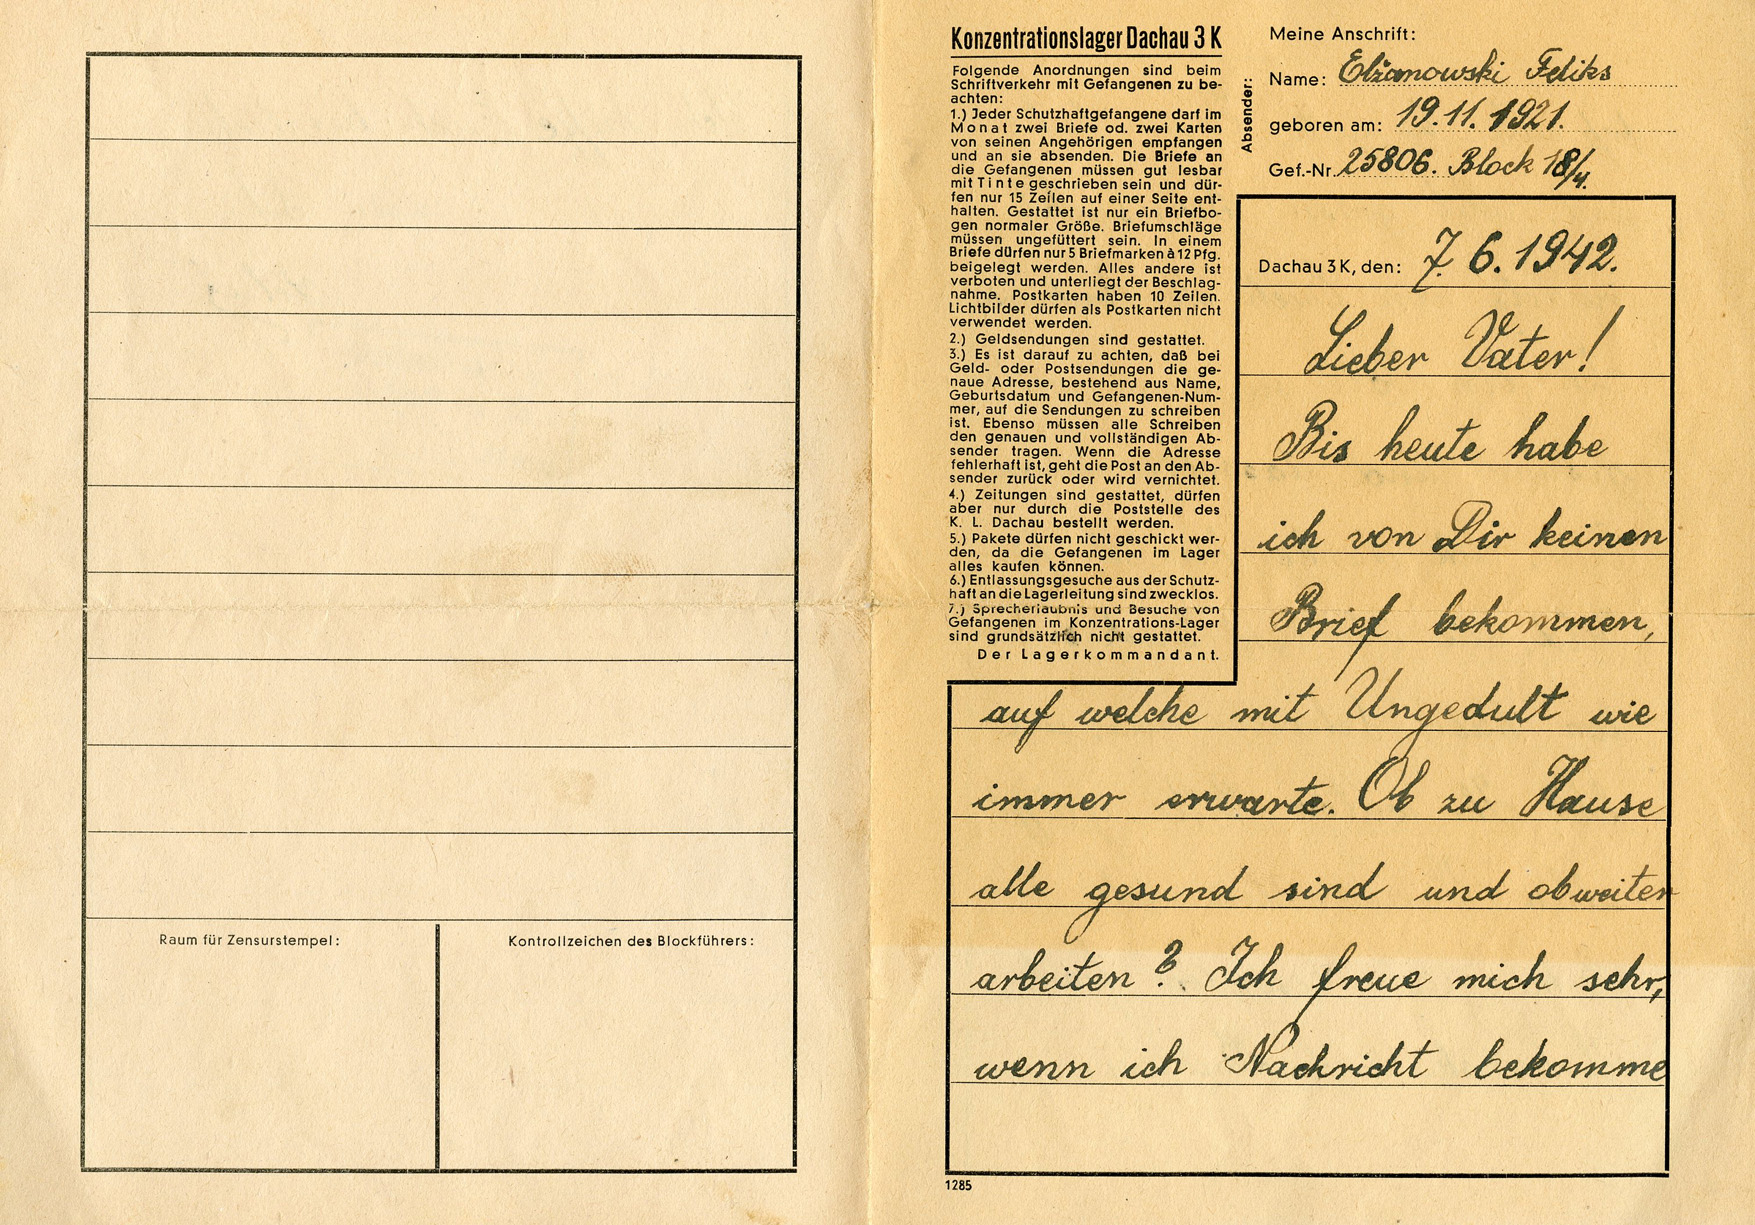 Raum für Zensurstempel:
Kontrollzeichen des Blockführers:
Konzentrationslager Dachau 3 K
Folgende Anordnungen sind beim
Schriftverkehr mit Gefangenen zu be-
achten:
1.) Jeder Schutzhaftgefangene darf im
Monat zwei Briefe od. zwei Karten
von seinen Angehörigen empfangen
und an sie absenden. Die Briefe an
die Gefangenen müssen gut lesbar
mit Tinte geschrieben sein und dür-
fen nur 15 Zeilen auf einer Seite ent-
halten. Gestattet ist nur ein Briefbo-
gen normaler Größe. Briefumschläge
müssen ungefüttert sein. In einem
Briefe dürfen nur 5 Briefmarken à 12 Pfg.
beigelegt werden. Alles andere ist
verboten und unterliegt der Beschlag-
nahme. Postkarten haben 10 Zeilen.
Lichtbilder dürfen als Postkarten nicht
verwendet werden.
2.) Geldsendungen sind gestattet.
3.) Es ist darauf zu achten, daß bei
Geld- oder Postsendungen die ge-
naue Adresse, bestehend aus Name,
Geburtsdatum und Gefangenen-Num-
mer, auf die Sendungen zu schreiben
ist. Ebenso müssen alle Schreiben
den genauen und vollständigen Ab-
sender tragen. Wenn die Adresse
fehlerhaft ist, geht die Post an den Ab-
sender zurück oder wird vernichtet.
4.) Zeitungen sind gestattet, dürfen
aber nur durch die Poststelle des
K. L. Dachau bestellt werden.
5.) Pakete dürfen nicht geschickt wer-
den, da die Gefangenen im Lager
alles kaufen können.
6.) Entlassungsgesuche aus der Schutz-
haft an die Lagerleitung sind zwecklos.
7.) Sprecherlaubnis und Besuche von
Gefangenen im Konzentrations-Lager
sind grundsätzlich nicht gestattet.
Der Lagerkommandant.
Absender:
Meine Anschrift:
Name: Elżanowski Feliks
geboren am: 19.11.1921.
Gef.-Nr. 25806. Block 18/4.
Dachau 3 K, den: 7.6.1942.
Lieber Vater!
Bis heute habe
ich von Dir keinen
Brief bekommen,
auf welche mit Ungedult wie
immer erwarte. Ob zu Hause
alle gesund sind und ob weiter
arbeiten? Ich freue mich sehr,
wenn ich Nachricht bekomme
1285